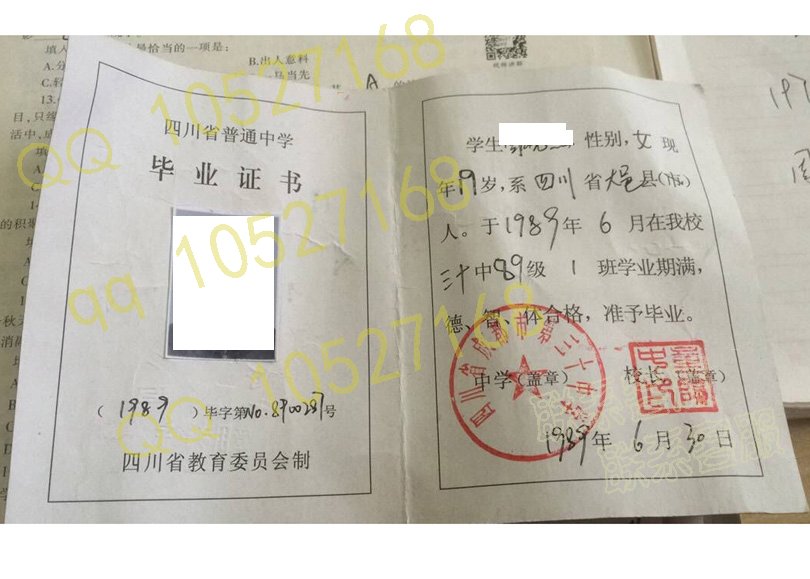 填入
最恰当的一项是:
B.出人意料
一马当先
A
四川省普通中学
毕业证书
(1989)毕字第No.8900287号
四川省教育委员会制
学生
性别,女现
年19岁,系四川省大邑县(市)
人。于1989年6月在我校
三十中89级1班学业期满,
德、智、体合格,准予毕业。
中学(盖章)
校长(盖章)
四川省成都市第三十中学
1989年6月30日
QQ 10527168
qq 10527168
QQ 10527168
联系客服